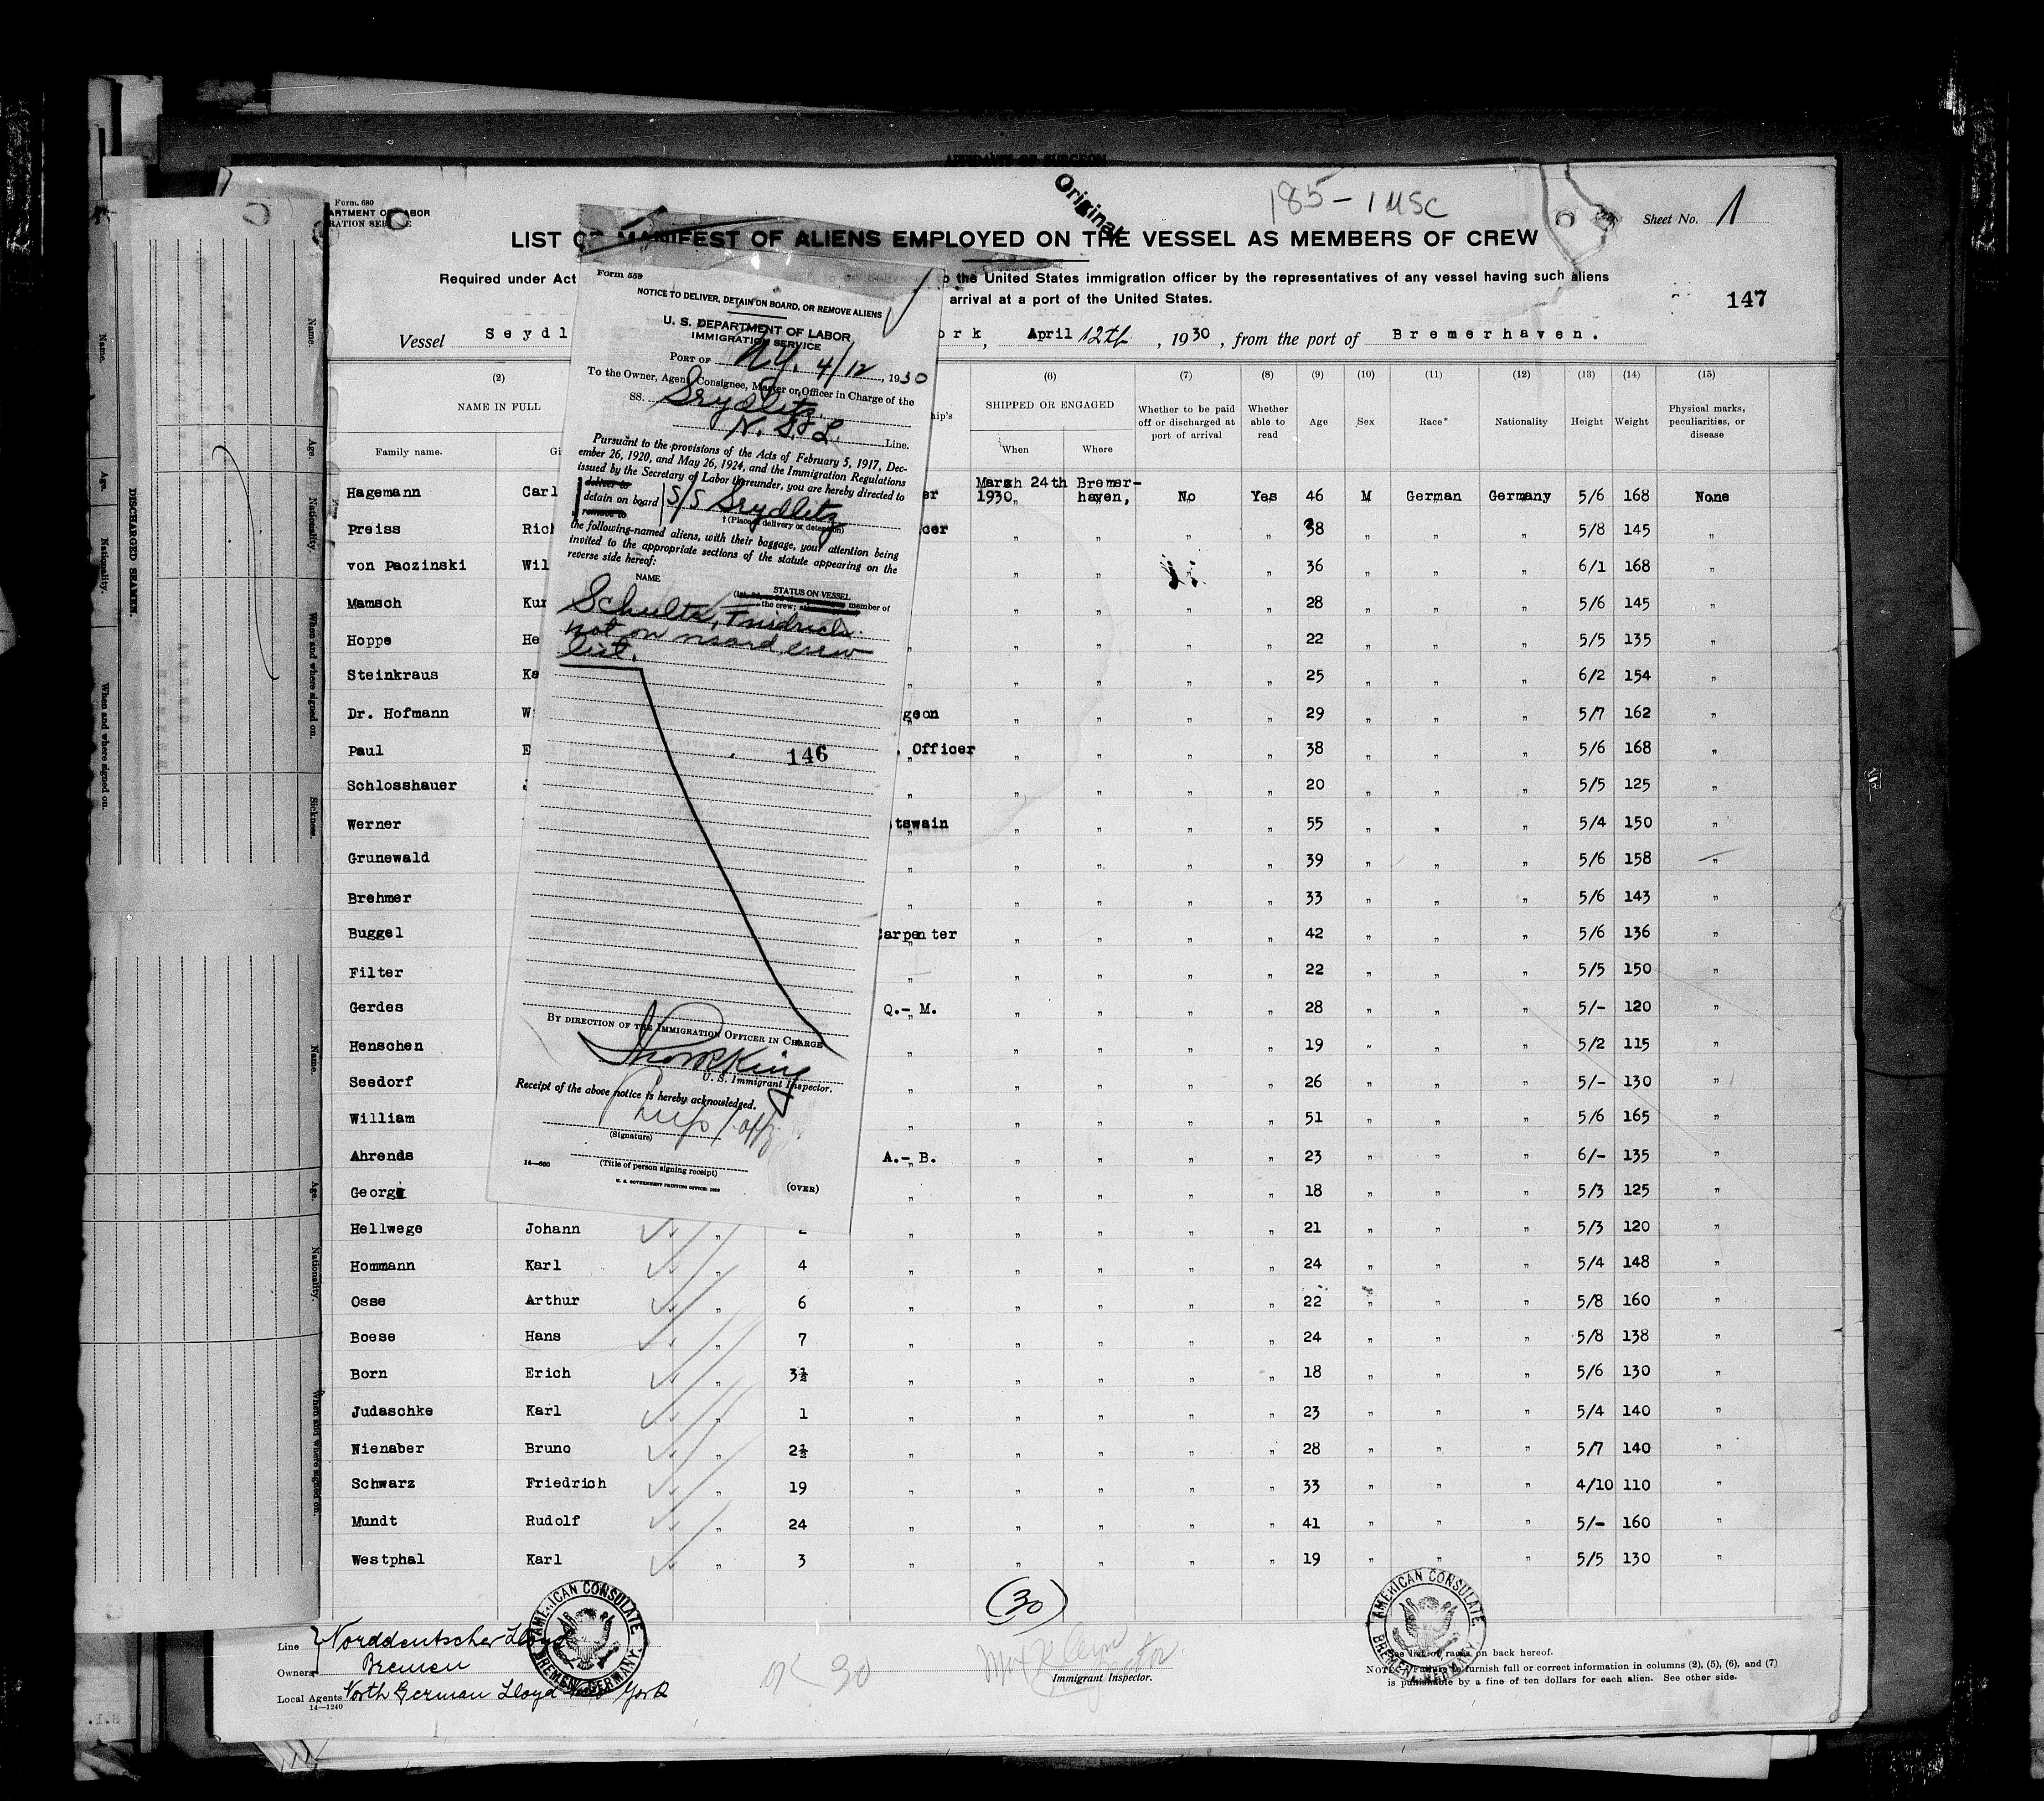 Original
185-1 USC
Form. 680
ARTMENT OF LABOR
RATION SERVICE
Sheet No. 1
LIST OR MANIFEST OF ALIENS EMPLOYED ON THE VESSEL AS MEMBERS OF CREW
Required under Act
o the United States immigration officer by the representatives of any vessel having such aliens
arrival at a port of the United States.
147
Vessel Seydl
ork, April 12th, 1930, from the port of Bremerhaven.
(2) (6) (7) (8) (9) (10) (11) (12) (13) (14) (15)
NAME IN FULL
Family name.
hip's
SHIPPED OR ENGAGED
When Where
Whether to be paid off or discharged at port of arrival
Whether able to read
Age
Sex
Race*
Nationality
Height
Weight
Physical marks, peculiarities, or disease
Hagemann Carl er March 24th 1930 Bremerhaven, No Yes 46 M German Germany 5/6 168 None
Preiss Rich cer " " " " 38 " " " 5/8 145 "
von Paczinski Wil " " " " 36 " " " 6/1 168 "
Mamsch Kur " " " " 28 " " " 5/6 145 "
Hoppe He " " " " " 22 " " " 5/5 135 "
Steinkraus Ka " " " " " 25 " " " 6/2 154 "
Dr. Hofmann W geon " " " " 29 " " " 5/7 162 "
Paul E . Officer " " " " 38 " " " 5/6 168 "
Schlosshauer J " " " " " 20 " " " 5/5 125 "
Werner tswain " " " " 55 " " " 5/4 150 "
Grunewald " " " " " 39 " " " 5/6 158 "
Brehmer " " " " " 33 " " " 5/6 143 "
Buggel Carpenter " " " " 42 " " " 5/6 136 "
Filter " " " " " 22 " " " 5/5 150 "
Gerdes Q.- M. " " " " 28 " " " 5/- 120 "
Henschen " " " " " 19 " " " 5/2 115 "
Seedorf " " " " " 26 " " " 5/- 130 "
William " " " " " 51 " " " 5/6 165 "
Ahrends A.- B. " " " " 23 " " " 6/- 135 "
Georgi " " " " " 18 " " " 5/3 125 "
Hellwege Johann " " " " " " 21 " " " 5/3 120 "
Hommann Karl " 4 " " " " " 24 " " " 5/4 148 "
Osse Arthur " 6 " " " " " 22 " " " 5/8 160 "
Boese Hans " 7 " " " " " 24 " " " 5/8 138 "
Born Erich " 3½ " " " " " 18 " " " 5/6 130 "
Judaschke Karl " 1 " " " " " 23 " " " 5/4 140 "
Nienaber Bruno " 2½ " " " " " 28 " " " 5/7 140 "
Schwarz Friedrich " 19 " " " " " 33 " " " 4/10 110 "
Mundt Rudolf " 24 " " " " " 41 " " " 5/- 160 "
Westphal Karl " 3 " " " " " 19 " " " 5/5 130 "
(30)
Line Norddeutscher Lloyd
Owners Bremen
Local Agents North German Lloyd New York
14—1240
AMERICAN CONSULATE
BREMEN, GERMANY.
OK 30
Immigrant Inspector.
AMERICAN CONSULATE
BREMEN, GERMANY.
See list of races on back hereof.
NOTE.—Failure to furnish full or correct information in columns (2), (5), (6), and (7)
is punishable by a fine of ten dollars for each alien. See other side.
Form 559
NOTICE TO DELIVER, DETAIN ON BOARD, OR REMOVE ALIENS
U. S. DEPARTMENT OF LABOR
IMMIGRATION SERVICE
PORT OF N.Y. 4/12, 1930
To the Owner, Agent, Consignee, Master or Officer in Charge of the
SS. Seydlitz.
N. G. L. Line.
Pursuant to the provisions of the Acts of February 5, 1917, Dec-
ember 26, 1920, and May 26, 1924, and the Immigration Regulations
issued by the Secretary of Labor thereunder, you are hereby directed to
deliver to
detain on board S/S Seydlitz
remove to
† (Place of delivery or detention)
the following-named aliens, with their baggage, your attention being
invited to the appropriate sections of the statute appearing on the
reverse side hereof:
NAME
STATUS ON VESSEL
the crew; member of
Schultz, Friedrich.
not on visaed crew
list.
146
BY DIRECTION OF THE IMMIGRATION OFFICER IN CHARGE
U. S. Immigrant Inspector.
Receipt of the above notice is hereby acknowledged.
(Signature)
(Title of person signing receipt)
14—660
U. S. GOVERNMENT PRINTING OFFICE: 1928
(OVER)
DISCHARGED SEAMEN.
Name. Age. Nationality. When and where signed on.
Name. Age. Nationality. When and where signed on. Sickness.
Name. Age. Nationality. When and where signed on.